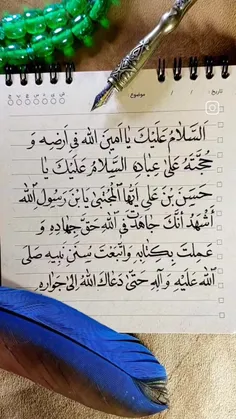 تاریخ: / /
موضوع
اَلسَّلامُ عَلَيْكَ يا اَمينَ اللهِ فى اَرْضِهِ وَ
حُجَّتَهُ عَلى عِبادِهِ السَّلامُ عَلَيْكَ يا
حَسَنَ بْنَ عَلى اَيُّهَا الْمُجْتَبى يَابْنَ رَسُولِ اللهِ
اَشْهَدُ اَنَّكَ جاهَدْتَ فِى اللهِ حَقَّ جِهادِهِ وَ
عَمِلْتَ بِكِتابِهِ وَاتَّبَعْتَ سُنَنَ نَبِيِّهِ صَلَّى
اللهُ عَلَيْهِ وَ آلِهِ حَتّى دَعاكَ اللهُ اِلى جِوارِهِ